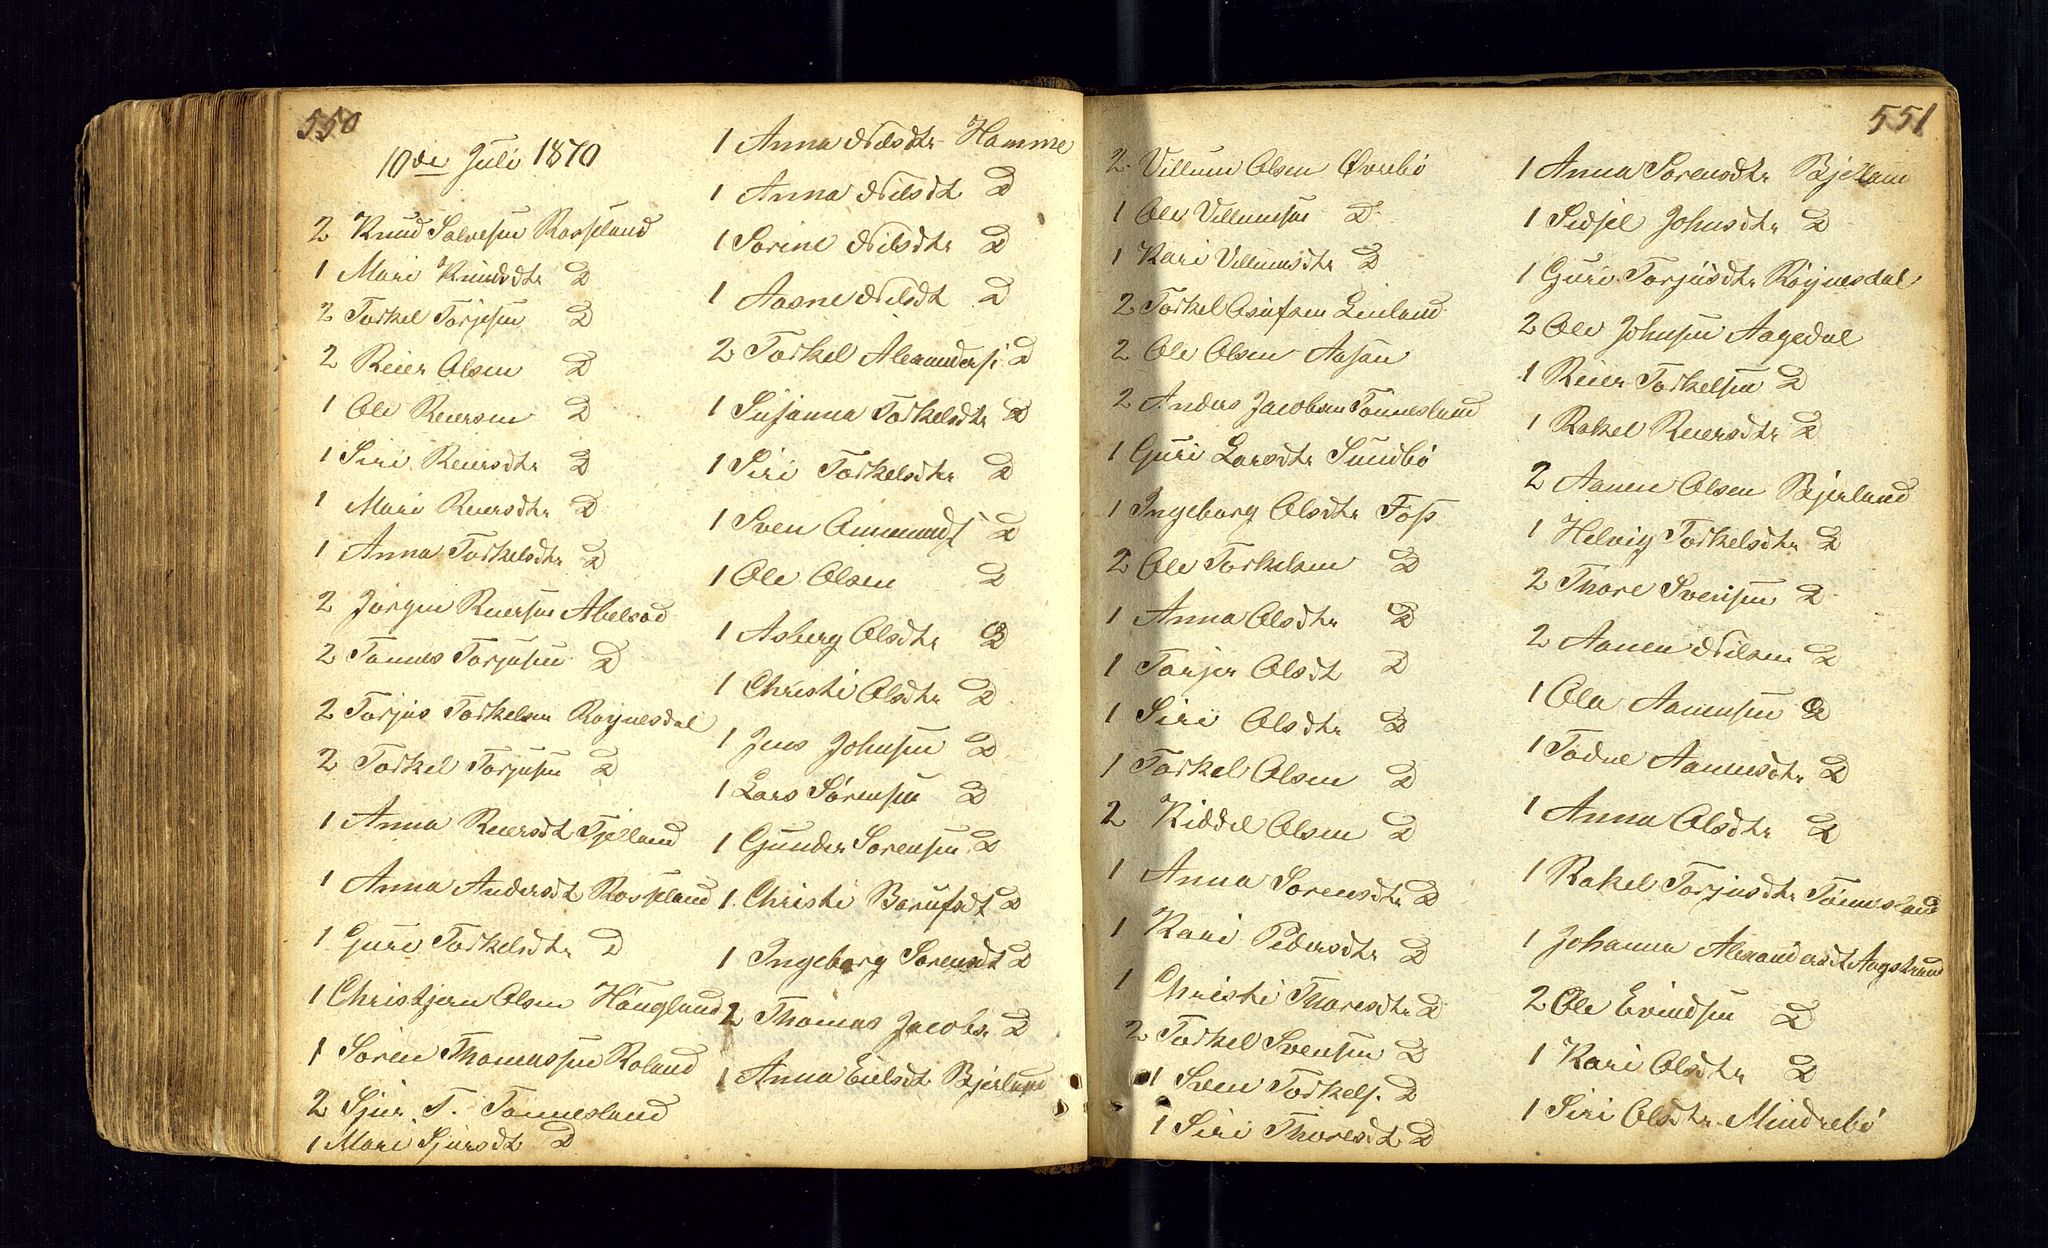 550
10de Juli 1870
2 Knud Salvesen Rosseland
1 Mari Knudsdtr D
2 Torkel Torjesen D
2 Reier Olsen D
1 Ole Reiersen D
1 Siri Reiersdtr D
1 Mari Reiersdtr D
1 Anna Torkelsdtr D
2 Jørgen Reiersen Abelsød
2 Tønnes Torjusen D
2 Torjus Torkelsen Røynesdal
2 Torkel Torjusen D
1 Anna Reiersdt Tjelland
1 Anna Andersdt Rosseland
1 Guri Torkelsdtr D
1 Christjern Olsen Haugland
1 Søren Thomassen Roland
2 Sjur T. Tønnesland
1 Mari Sjursdt D
1 Anna Nilsdtr Hamme
1 Anna Nilsdt D
1 Sorine Nilsdtr D
1 Aasne Nilsdt D
2 Torkel Alexanders. D
1 Susanna Torkelsdtr D
1 Siri Torkelsdtr D
1 Sven Ammunds. D
1 Ole Olsen D
1 Asberg Olsdtr D
1 Christi Olsdtr D
1 Jens Johnsen D
1 Lars Sørensen D
1 Gunder Sørensen D
1 Christi Bentsdt D
1 Ingeborg Sørensdt D
2 Thomas Jacobs. D
1 Anna Eielsdt Bjerland
551
2 Villum Olsen Øvrebø
1 Ole Villumsen D
1 Kari Villumsdtr D
2 Torkel Osufsen Linland
2 Ole Olsen Aasan
2 Anders Jacobsen Tønnesland
1 Guri Larsdtr Sundbø
1 Ingeborg Olsdtr Foss
2 Ole Torkelsen D
1 Anna Olsdtr D
1 Torjer Olsdt D
1 Siri Olsdtr D
1 Torkel Olsen D
2 Kiddel Olsen D
1 Anna Sørensdtr D
1 Kari Pedersdtr D
1 Christi Thoresdtr D
2 Torkel Svensen D
1 Sven Torkels. D
1 Siri Thoresdt D
1 Anna Sørensdtr Bjelland
1 Sidsel Johnsdtr D
1 Guri Torjusdtr Røynesdal
2 Ole Johnsen Aagedal
1 Reier Torkelsen D
1 Rakel Reiersdtr D
2 Aanen Olsen Bjerland
1 Helvig Torkelsdtr D
2 Thore Svensen D
2 Aanen Nilsen D
1 Ola Aanensen D
1 Todne Aanensdtr D
1 Anna Olsdtr D
1 Rakel Torjusdtr Tønnesland
1 Johanna Alexandersdt Augland
2 Ole Evindsen D
1 Kari Olsdtr D
1 Siri Olsdtr Mindrebø